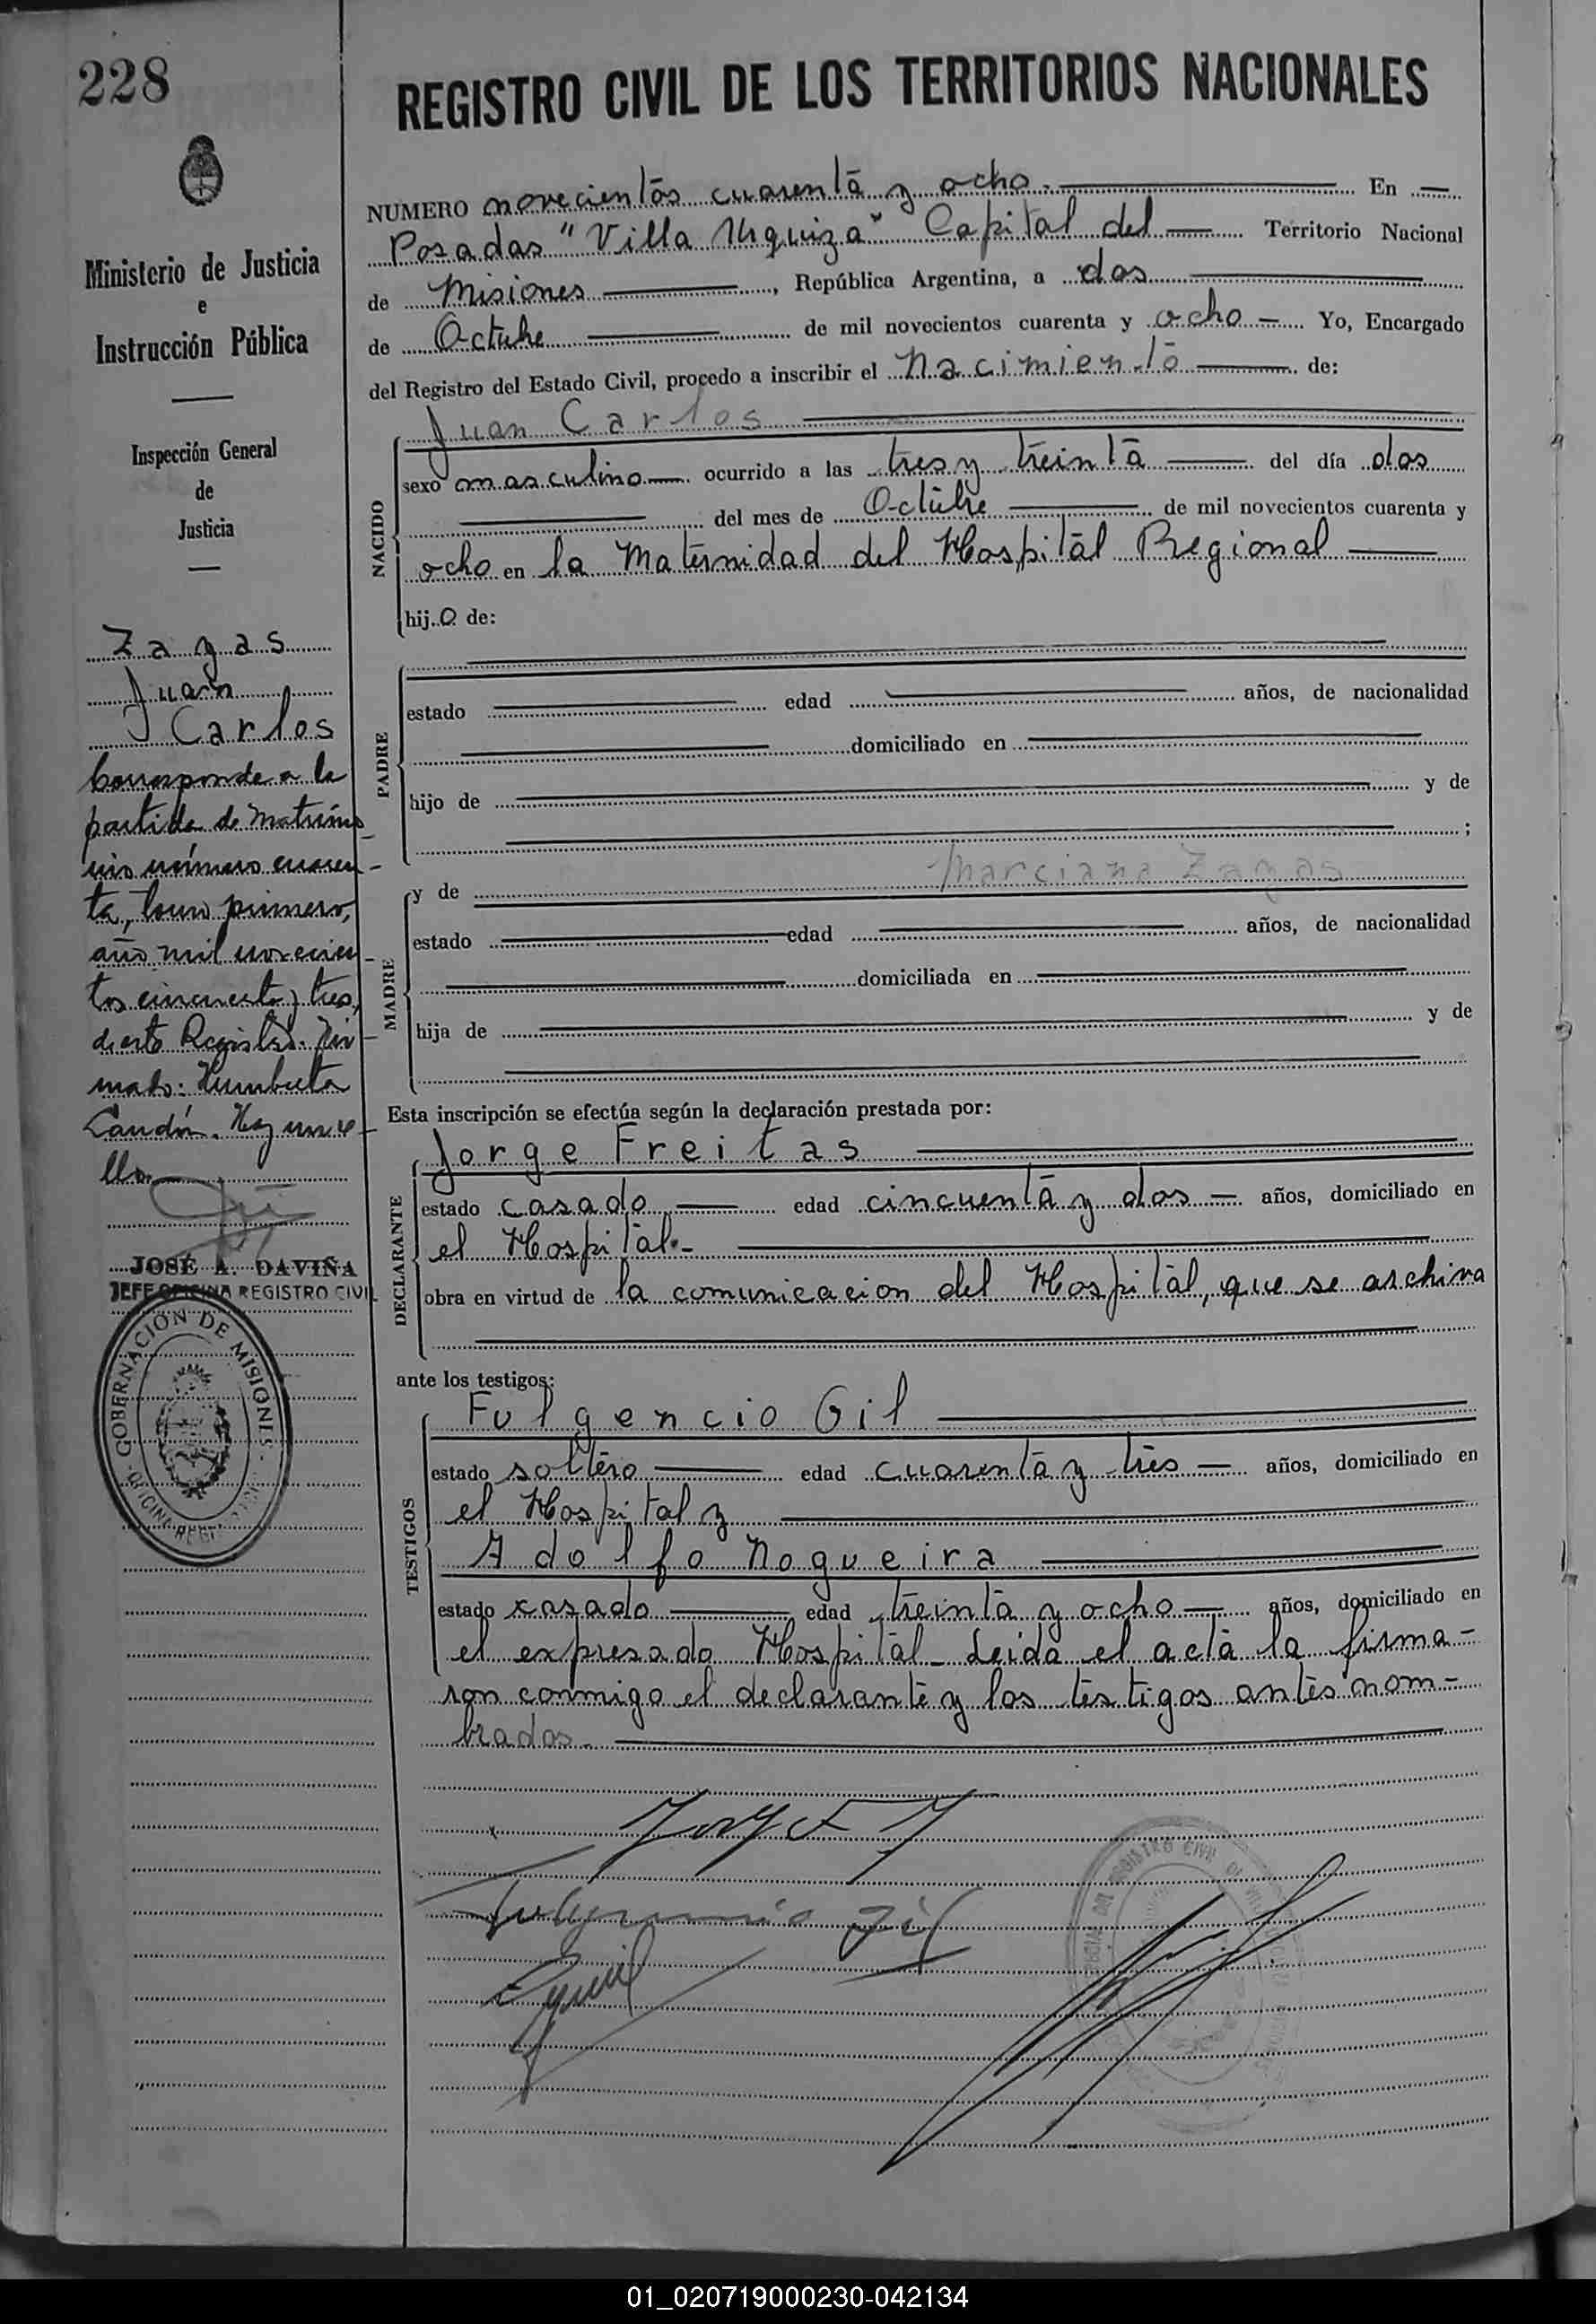 228
REGISTRO CIVIL DE LOS TERRITORIOS NACIONALES
Ministerio de Justicia
e
Instrucción Pública
Inspección General
de
Justicia
Zayas
Juan
Carlos
Corresponde a la
partida de Matrimo
nio número cuaren-
ta, tomo primero,
año mil novecien-
tos cincuenta y tres,
de este Registro. Fir-
mado: Humberto
Landó. Hay un se-
llo.
JOSÉ A. DAVIÑA
JEFE OFICINA REGISTRO CIVIL
GOBERNACIÓN DE MISIONES
NUMERO novecientos cuarenta y ocho. En
Posadas "Villa Urquiza" Capital del Territorio Nacional
de Misiones, República Argentina, a dos
de Octubre de mil novecientos cuarenta y ocho Yo, Encargado
del Registro del Estado Civil, procedo a inscribir el Nacimiento de:
NACIDO
Juan Carlos
sexo masculino ocurrido a las tres y treinta del día dos
del mes de Octubre de mil novecientos cuarenta y
ocho en la Maternidad del Hospital Regional
hijo de:
PADRE
estado edad años, de nacionalidad
domiciliado en
hijo de y de
;
MADRE
y de Marciana Zayas
estado edad años, de nacionalidad
domiciliada en
hija de y de
Esta inscripción se efectúa según la declaración prestada por:
DECLARANTE
Jorge Freitas
estado casado edad cincuenta y dos años, domiciliado en
el Hospital.-
obra en virtud de la comunicacion del Hospital, que se archiva
ante los testigos:
TESTIGOS
Fulgencio Gil
estado soltero edad cuarenta y tres años, domiciliado en
el Hospital y
Adolfo Nogueira
estado casado edad treinta y ocho años, domiciliado en
el expresado Hospital - Leida el acta la firma-
ron conmigo el declarante y los testigos antes nom-
brados.-
Jorge F
Fulgencio Gil
REGISTRO CIVIL
01_020719000230-042134